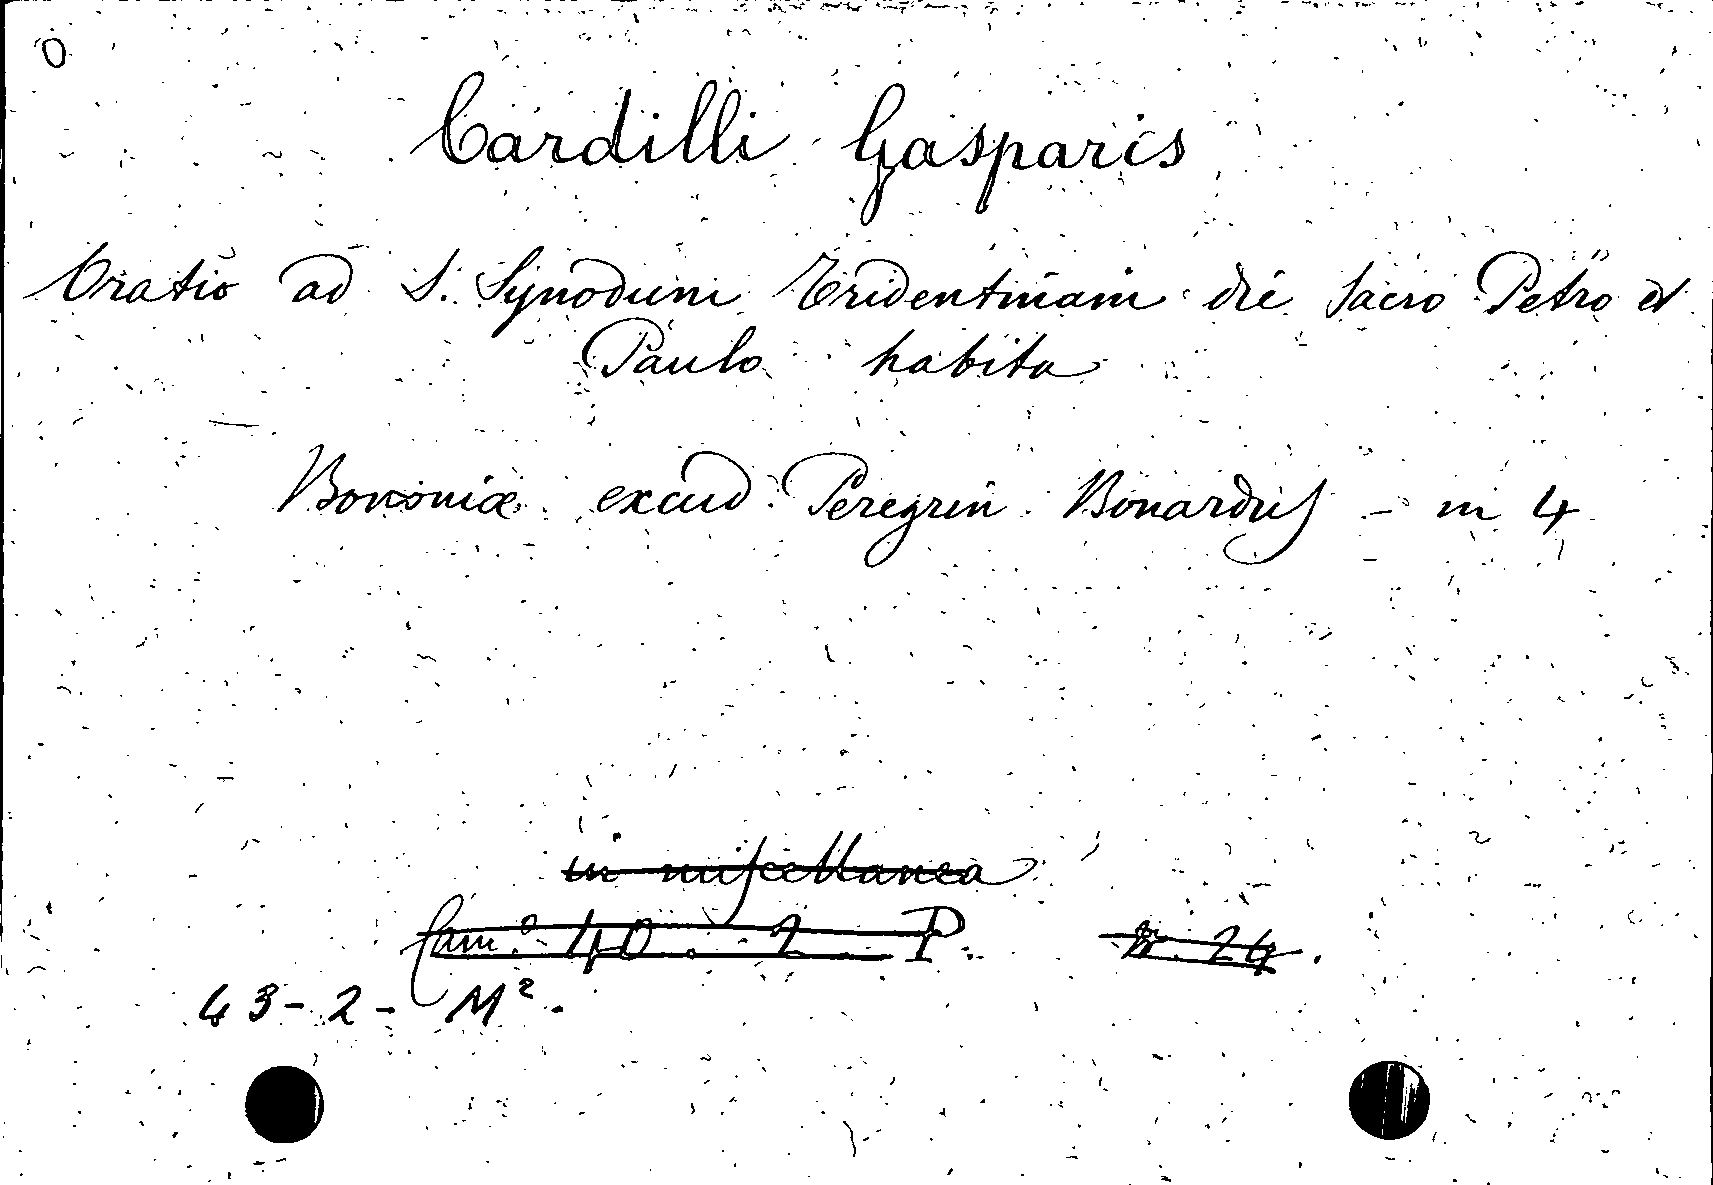 O
Cardilli Gasparis
Oratio ad S. Synodum Tridentinam die sacro Petro et
Paulo habita
Bononiæ excud. Peregrin. Bonardus - in 4
in miscellanea
Cam.ª 40. 2 P. n. 24.
43 - 2 - M².